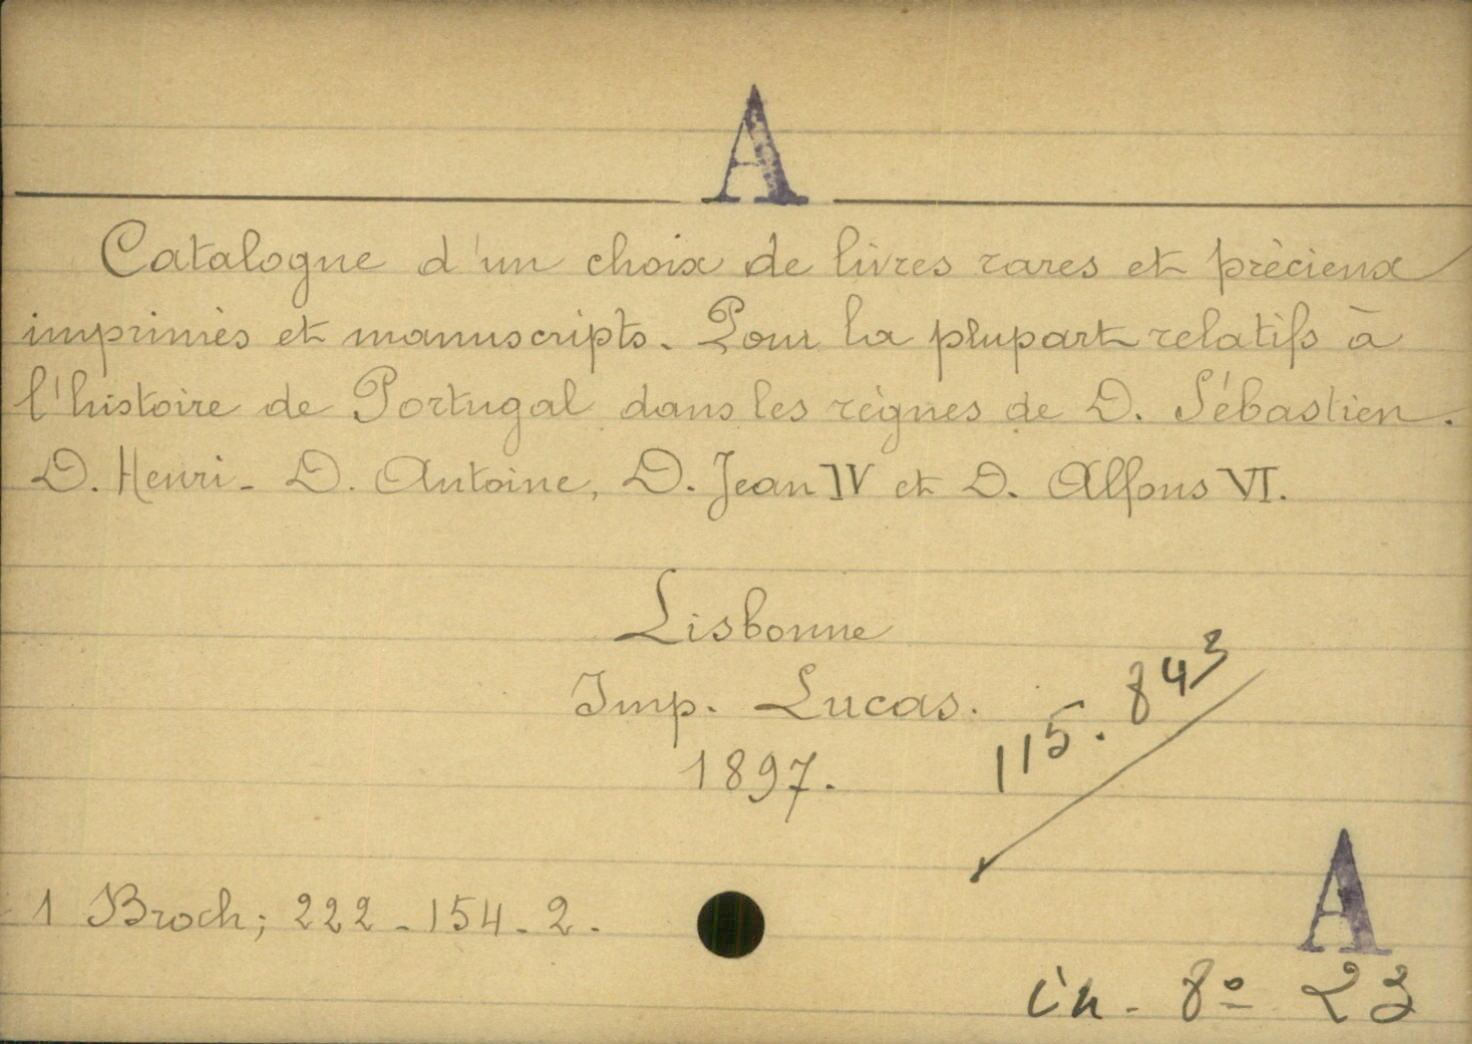 A
Catalogue d'un choix de livres rares et précieux
imprimés et manuscripts. Pour la plupart relatifs à
l'histoire de Portugal dans les règnes de D. Sébastien.
D. Henri - D. Antoine, D. Jean IV et D. Alfons VI.
Lisbonne
Imp. Lucas.
1897.
115.843
1 Broch; 222-154-2.
A
in-8º 23